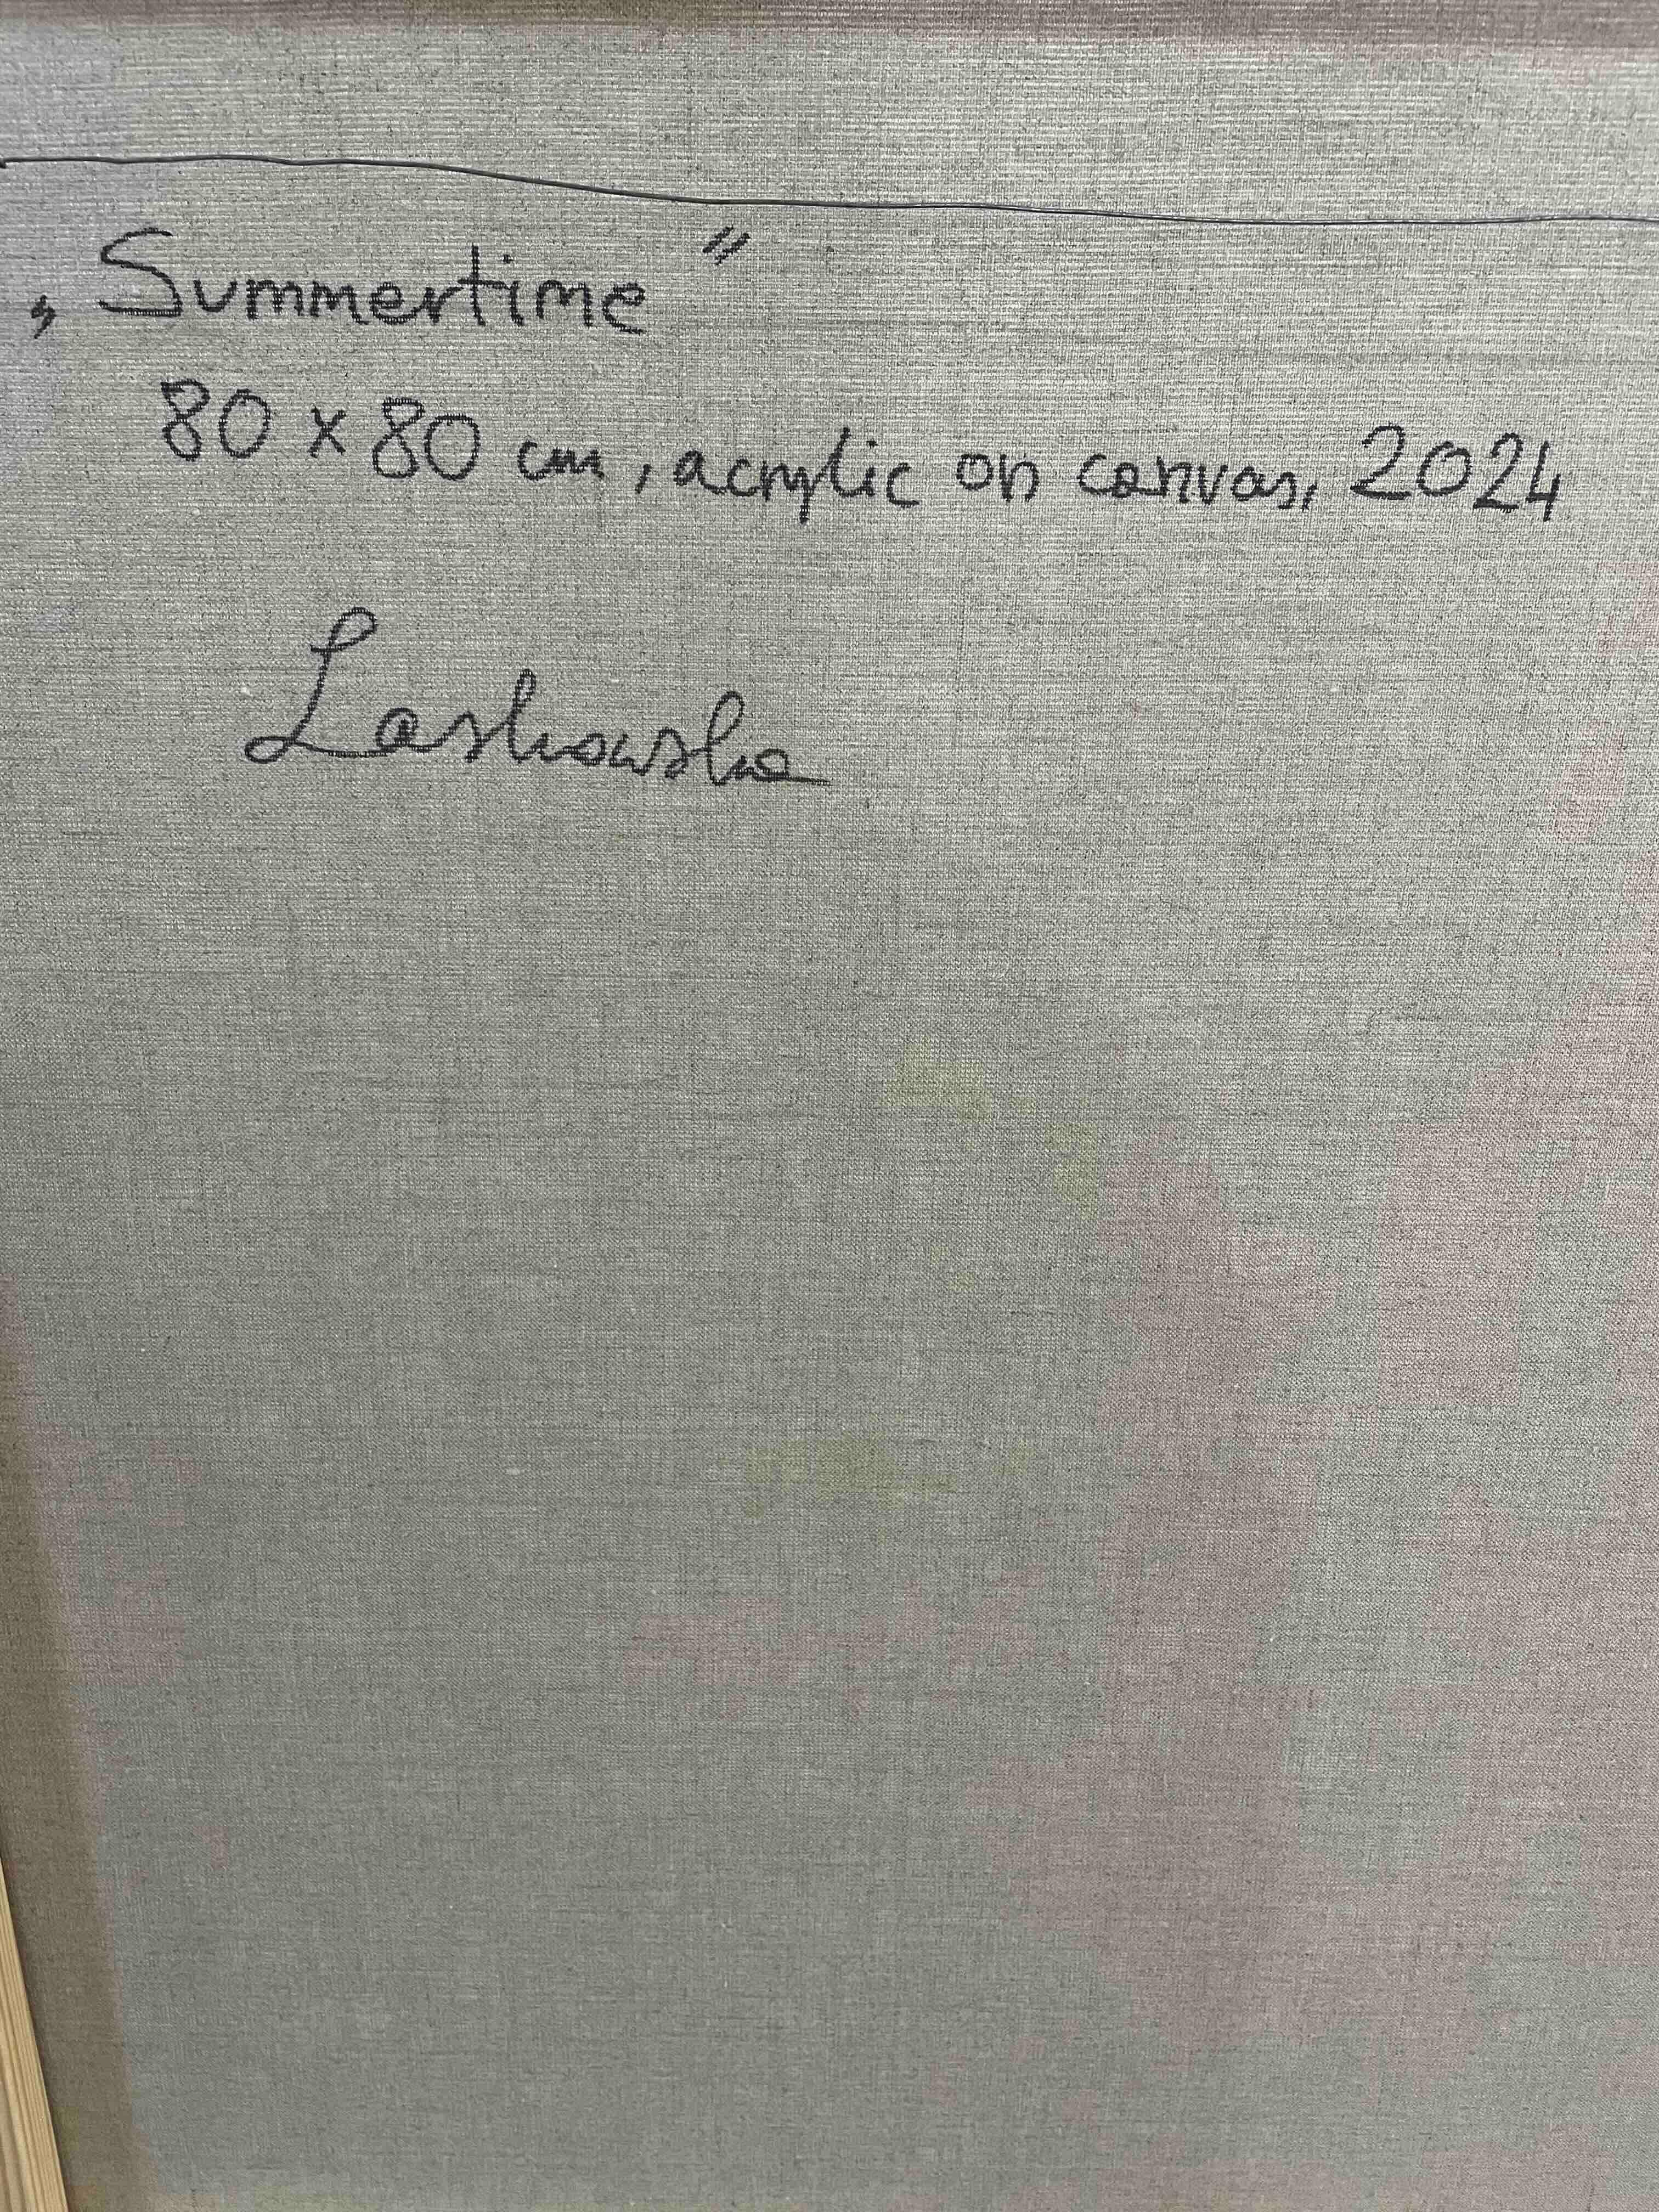 „Summertime”
80 x 80 cm, acrylic on canvas, 2024
Laskowska